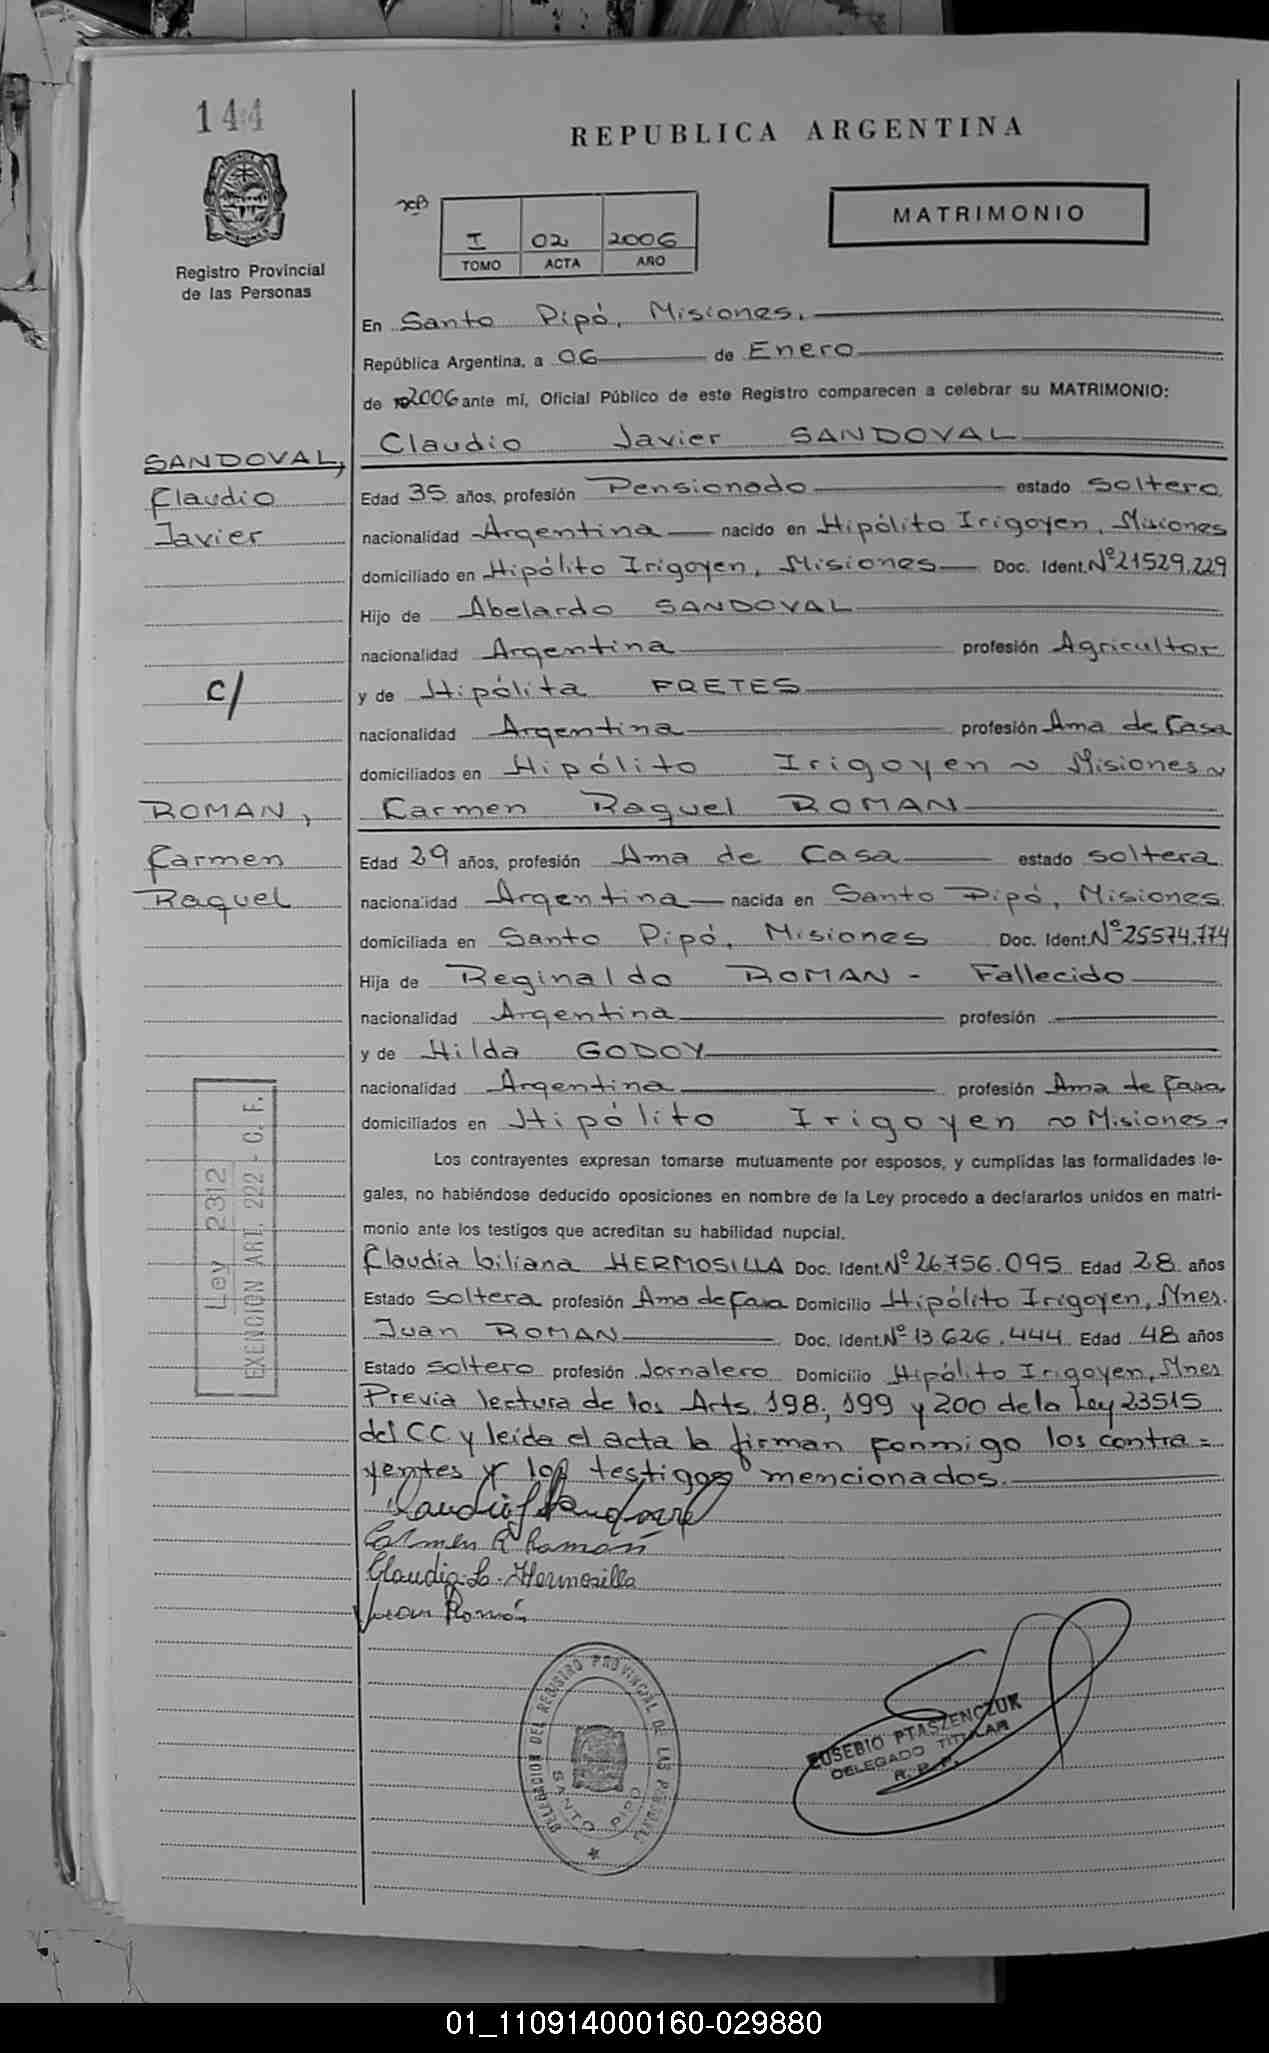 144
REPUBLICA ARGENTINA
MATRIMONIO
I 02 2006
TOMO ACTA AÑO
Registro Provincial
de las Personas
En Santo Pipó, Misiones.
República Argentina, a 06 de Enero
de 2006 ante mí, Oficial Público de este Registro comparecen a celebrar su MATRIMONIO:
Claudio Javier SANDOVAL
SANDOVAL,
Claudio
Javier
Edad 35 años, profesión Pensionado estado soltero
nacionalidad Argentina nacido en Hipólito Irigoyen, Misiones
domiciliado en Hipólito Irigoyen, Misiones Doc. Ident. Nº 21529.229
Hijo de Abelardo SANDOVAL
nacionalidad Argentina profesión Agricultor
c/
y de Hipólita FRETES
nacionalidad Argentina profesión Ama de Casa
domiciliados en Hipólito Irigoyen ~ Misiones ~
ROMAN,
Carmen
Raquel
Carmen Raquel ROMAN
Edad 29 años, profesión Ama de Casa estado soltera
nacionalidad Argentina nacida en Santo Pipó, Misiones.
domiciliada en Santo Pipó, Misiones Doc. Ident. Nº 25574.774
Hija de Reginaldo ROMAN - Fallecido
nacionalidad Argentina profesión
y de Hilda GODOY
nacionalidad Argentina profesión Ama de Casa
domiciliados en Hipólito Irigoyen ~ Misiones-
Los contrayentes expresan tomarse mutuamente por esposos, y cumplidas las formalidades le-
gales, no habiéndose deducido oposiciones en nombre de la Ley procedo a declararlos unidos en matri-
monio ante los testigos que acreditan su habilidad nupcial.
Ley 2312
EXENCION ART. 222 - C. F.
Claudia Liliana HERMOSILLA Doc. Ident. Nº 26.756.095 Edad 28 años
Estado soltera profesión Ama de Casa Domicilio Hipólito Irigoyen, Mnes.
Juan ROMAN Doc. Ident. Nº 13.626.444 Edad 48 años
Estado soltero profesión Jornalero Domicilio Hipólito Irigoyen, Mnes
Previa lectura de los Arts. 198, 199 y 200 de la Ley 23515
del CC y leída el acta la firman conmigo los contra=
yentes y los testigos mencionados.
Claudio J Sandoval
Carmen R Roman
Claudia L. Hermosilla
Juan Román
DELEGACION DEL REGISTRO PROVINCIAL DE LAS PERSONAS
SANTO PIPO
EUSEBIO PTASZENCZUK
DELEGADO TITULAR
R. P. P.
01_110914000160-029880